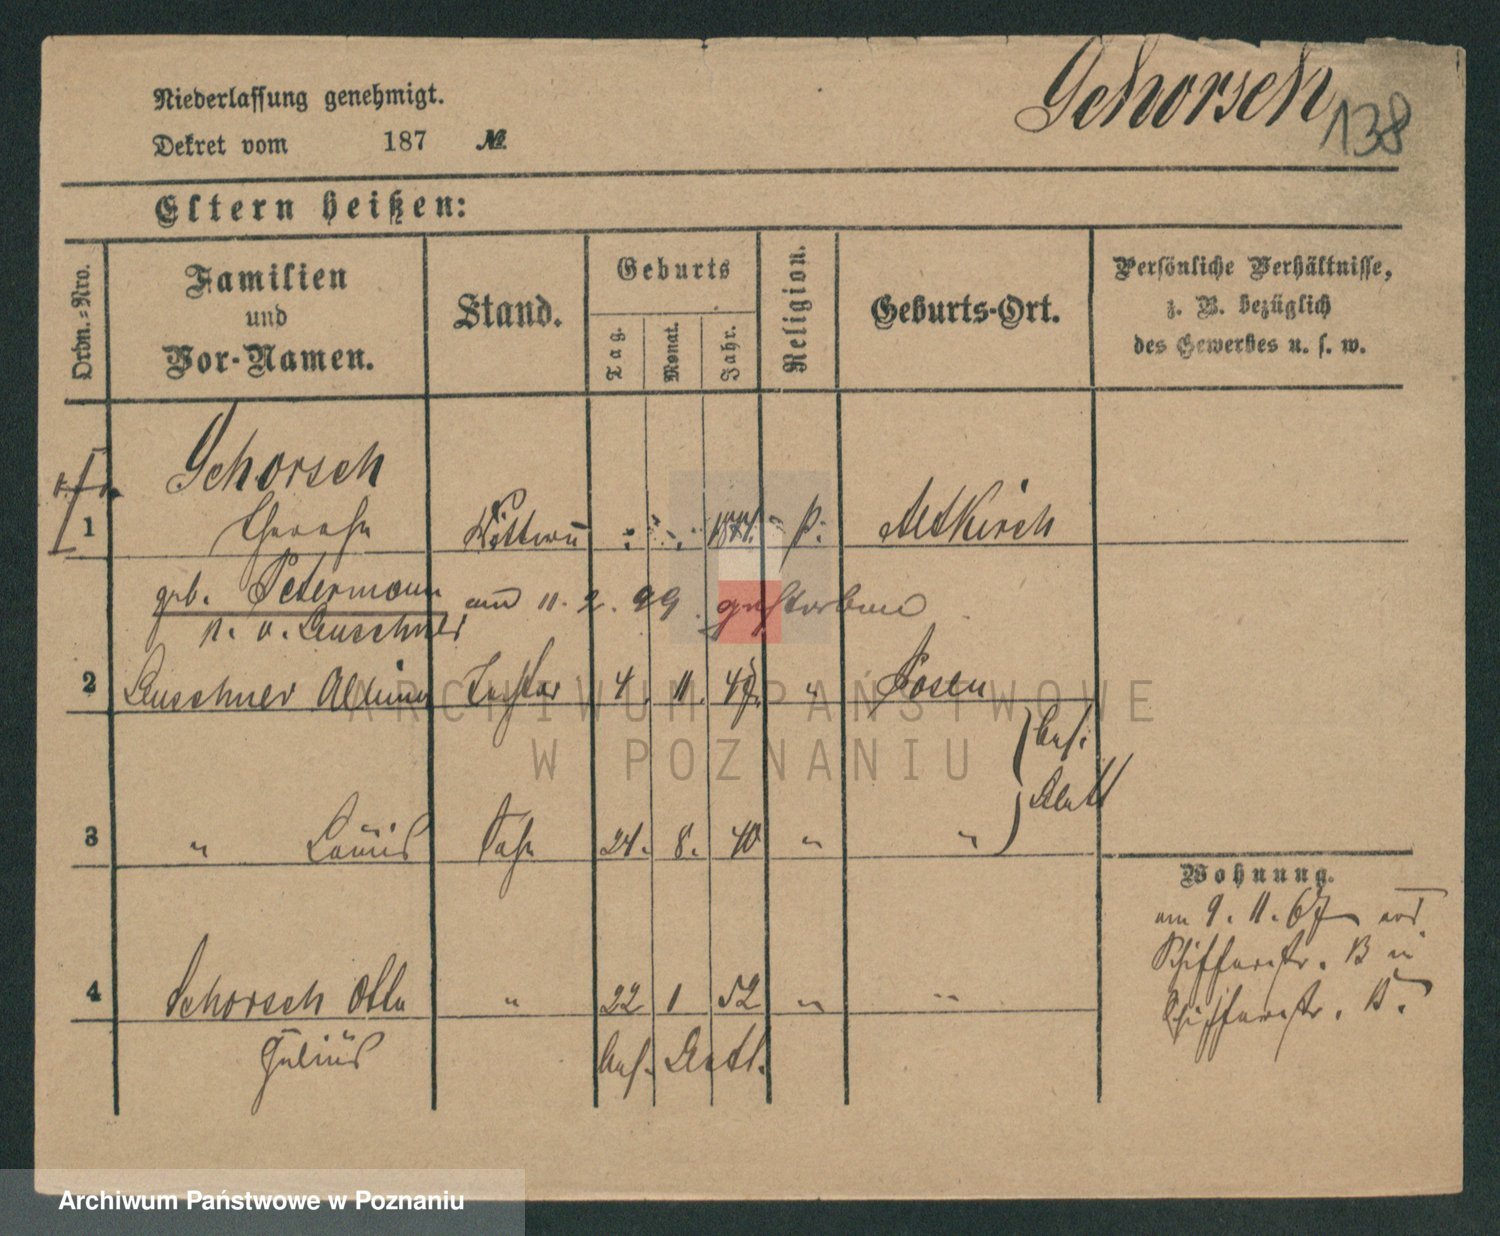 Niederlassung genehmigt.
Schorsch
138
Dekret vom 187 №
Eltern heißen:
Ordn.-Nro.
Familien
und
Vor-Namen.
Stand.
Geburts
Tag.
Monat.
Jahr.
Religion.
Geburts-Ort.
Persönliche Verhältnisse,
z. B. bezüglich
des Gewerbes u. s. w.
Schorsch
1 Therese Wittwe k. Altkirch
geb. Petermann am 11. 2. 99. gestorben
n. v. Leuschner
2 Leuschner Tochter 4. 11. 47. " Posen
bes.
Blatt
3 " Louis Sohn 24. 8. 40 " "
Wohnung.
am 9. 11. 67 aus
Schifferstr. 13 in
Schifferstr. 15.
4 Schorsch Otto " 22 1 52 " "
Julius bes. Blatt.
ARCHIWUM PAŃSTWOWE
W POZNANIU
Archiwum Państwowe w Poznaniu